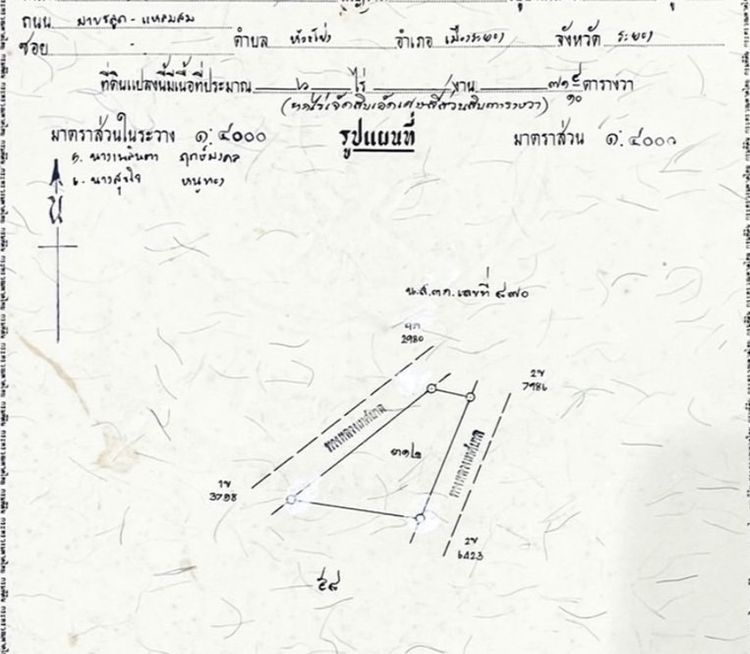 ถนน มาบชลูด - แหลมสน
ซอย - ตำบล ห้วยโป่ง อำเภอ เมืองระยอง จังหวัด ระยอง
ที่ดินแปลงนี้มีเนื้อที่ประมาณ ๖ ไร่ / งาน ๗๑ ๕/๑๐ ตารางวา
(หกไร่เจ็ดสิบเอ็ดเศษสี่ส่วนสิบตารางวา)
มาตราส่วนในระวาง ๑:๔๐๐๐ รูปแผนที่ มาตราส่วน ๑:๔๐๐๐
น
น.ส.๓ก.เลขที่ ๔๗๐
2980
2ข
7986
ทางหลวงเทศบาล
๓๑๒
ทางหลวงเทศบาล
1ข
3798
2ข
6423
๕๘